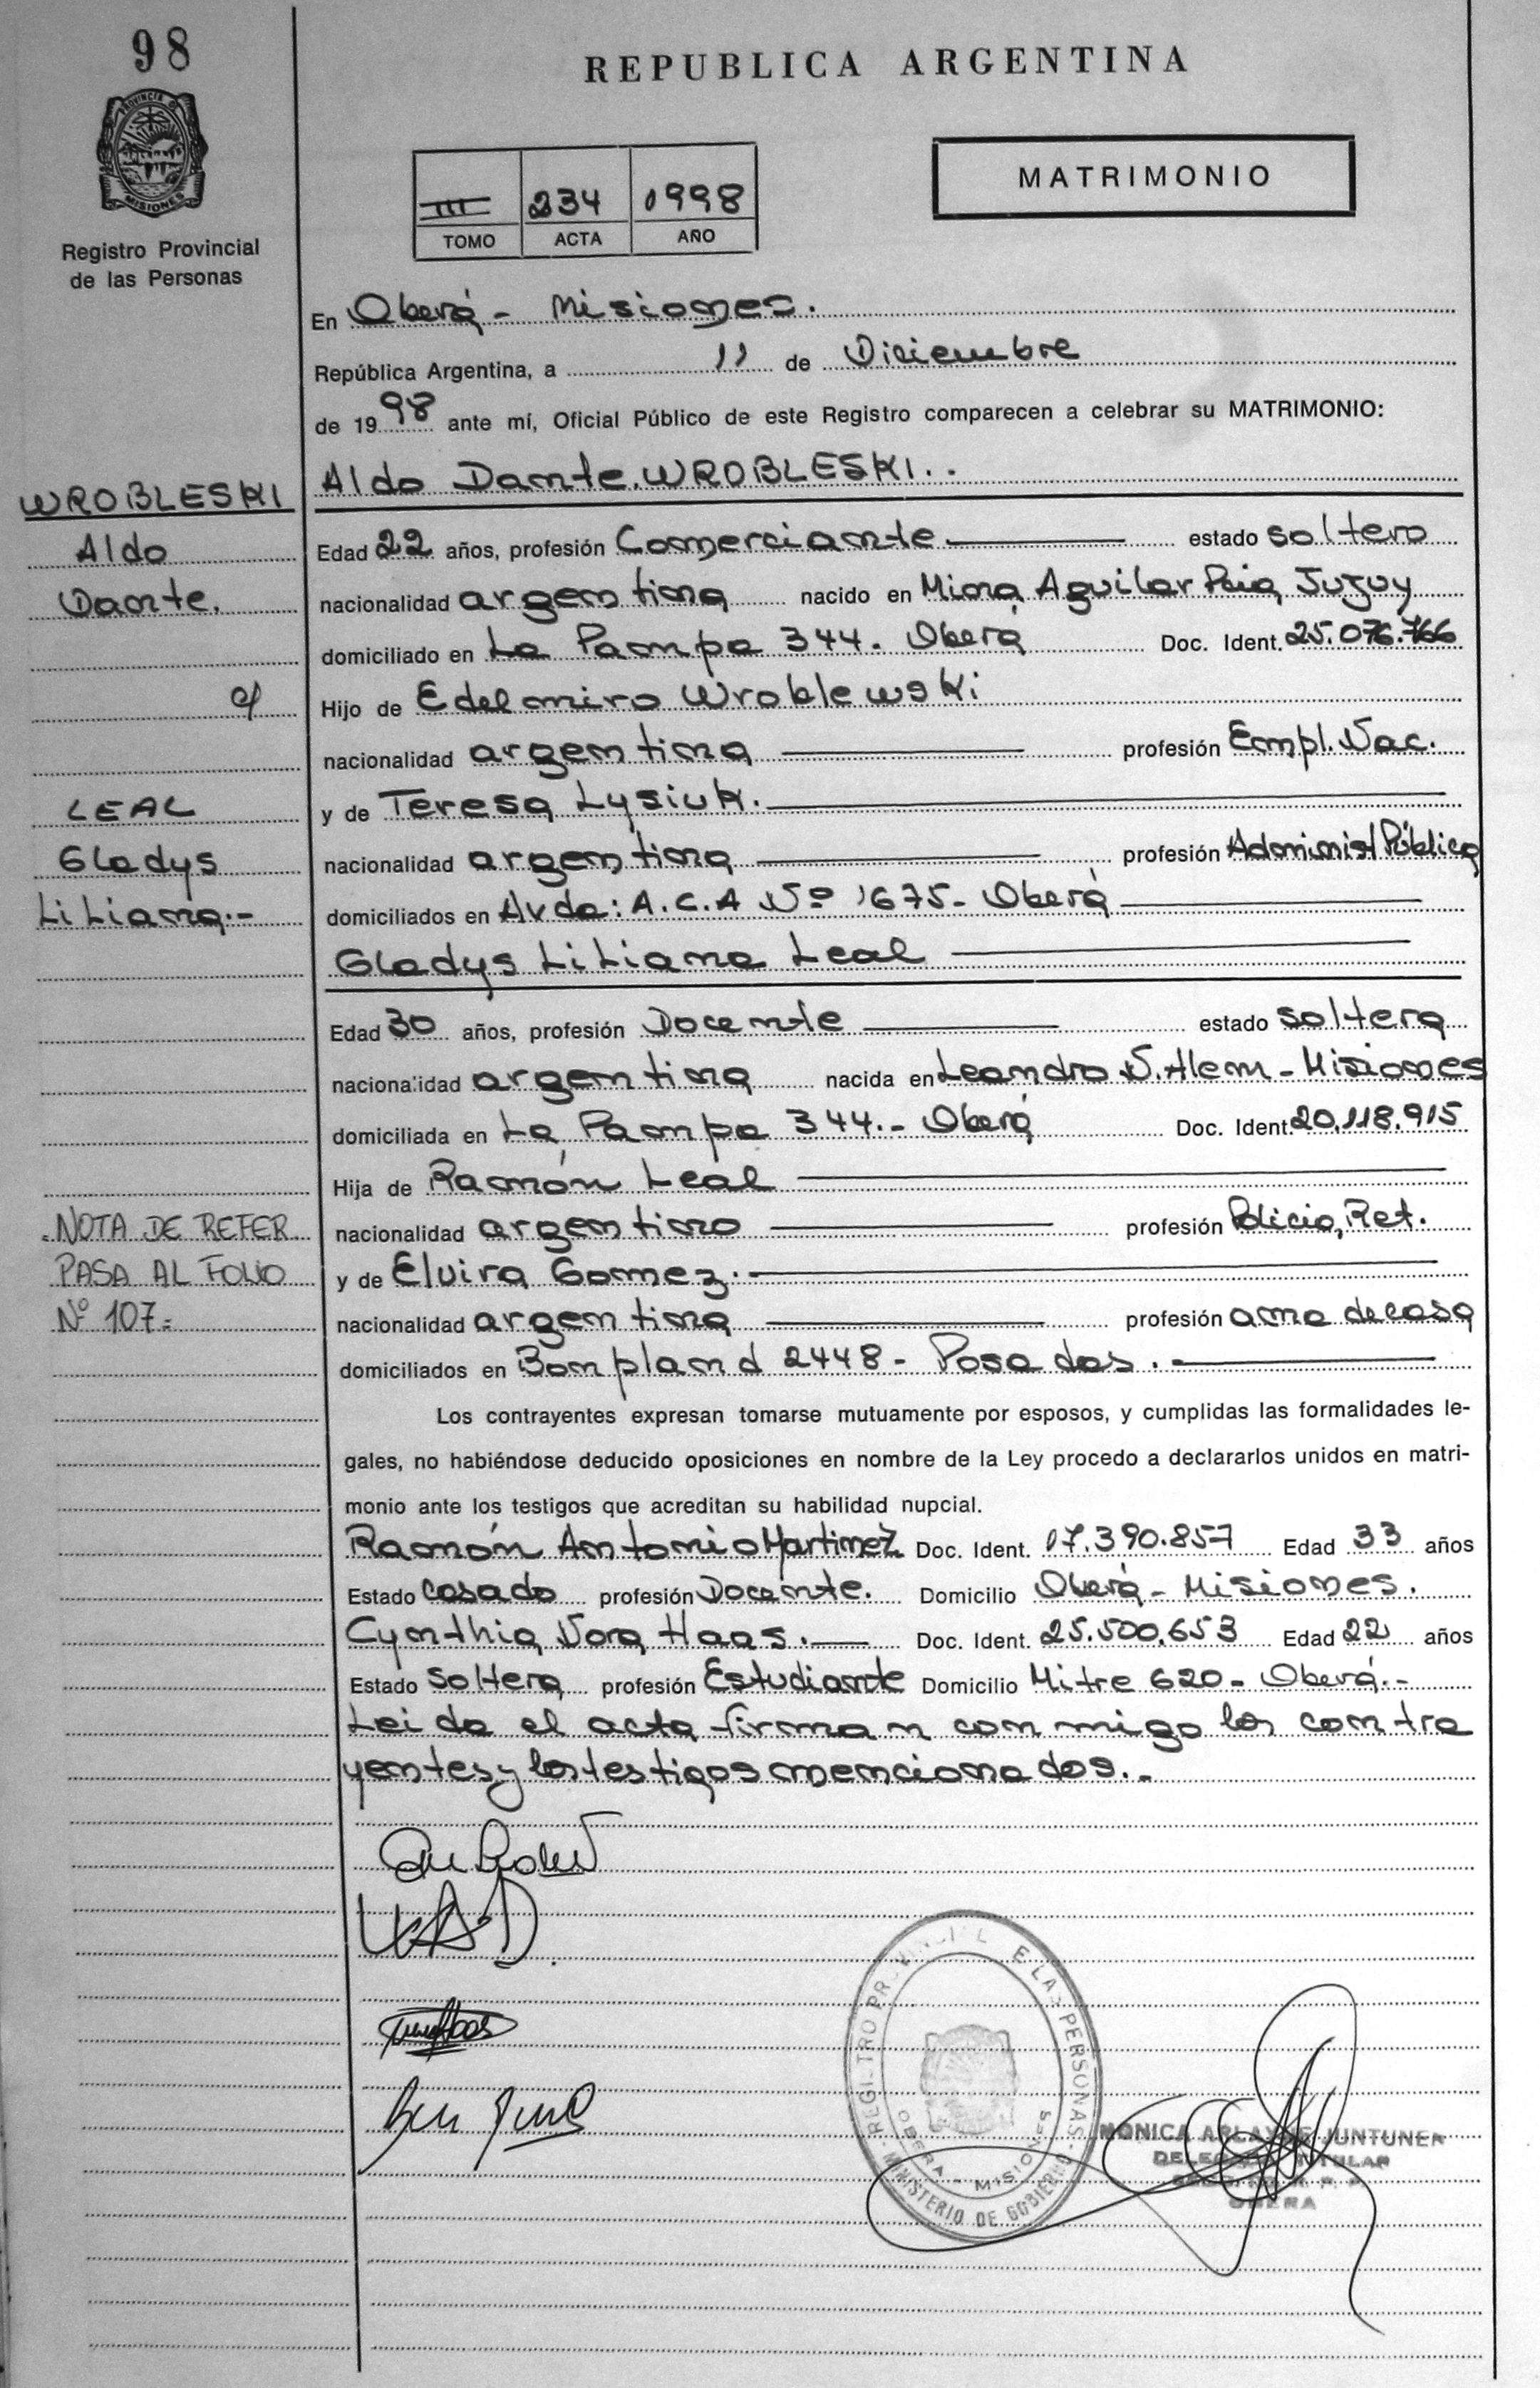 98
REPUBLICA ARGENTINA
PROVINCIA DE
MISIONES
Registro Provincial
de las Personas
III 234 1998
TOMO ACTA AÑO
MATRIMONIO
En Oberá - Misiones.
República Argentina, a 11 de Diciembre
de 1998 ante mí, Oficial Público de este Registro comparecen a celebrar su MATRIMONIO:
WROBLESKI
Aldo
Dante.
c/
LEAL
Gladys
Liliana.-
NOTA DE REFER
PASA AL FOLIO
Nº 107.=
Aldo Dante WROBLESKI..
Edad 22 años, profesión Comerciante estado soltero
nacionalidad argentina nacido en Mina Aguilar Jujuy
domiciliado en La Pampa 344. Oberá Doc. Ident. 25.076.766
Hijo de Edelmiro Wroblewski
nacionalidad argentina profesión Empl. Nac.
y de Teresa Lysiuk.
nacionalidad argentina profesión Administ Pública
domiciliados en Avda: A.C.A Nº 1675- Oberá
Gladys Liliana Leal
Edad 30 años, profesión Docente estado soltera
nacionalidad argentina nacida en Leandro N. Alem - Misiones
domiciliada en La Pampa 344.- Oberá Doc. Ident. 20.118.915
Hija de Ramón Leal
nacionalidad argentino profesión Policia, Ret.
y de Elvira Gomez.
nacionalidad argentina profesión ama de casa
domiciliados en Bompland 2448 - Posadas.
Los contrayentes expresan tomarse mutuamente por esposos, y cumplidas las formalidades le-
gales, no habiéndose deducido oposiciones en nombre de la Ley procedo a declararlos unidos en matri-
monio ante los testigos que acreditan su habilidad nupcial.
Ramón Antonio Martinez Doc. Ident. 17.390.857 Edad 33 años
Estado casado profesión Docente. Domicilio Oberá - Misiones.
Cynthia Nora Haas. Doc. Ident. 25.500.653 Edad 22 años
Estado Soltera profesión Estudiante Domicilio Mitre 620 - Oberá.-
Leida el acta firman conmigo los contra
yentes y los testigos mencionados.-
REGISTRO PROVINCIAL DE LAS PERSONAS
OBERA - MISIONES
MINISTERIO DE GOBIERNO
MONICA JUNTUNEN
TITULAR
OBERA